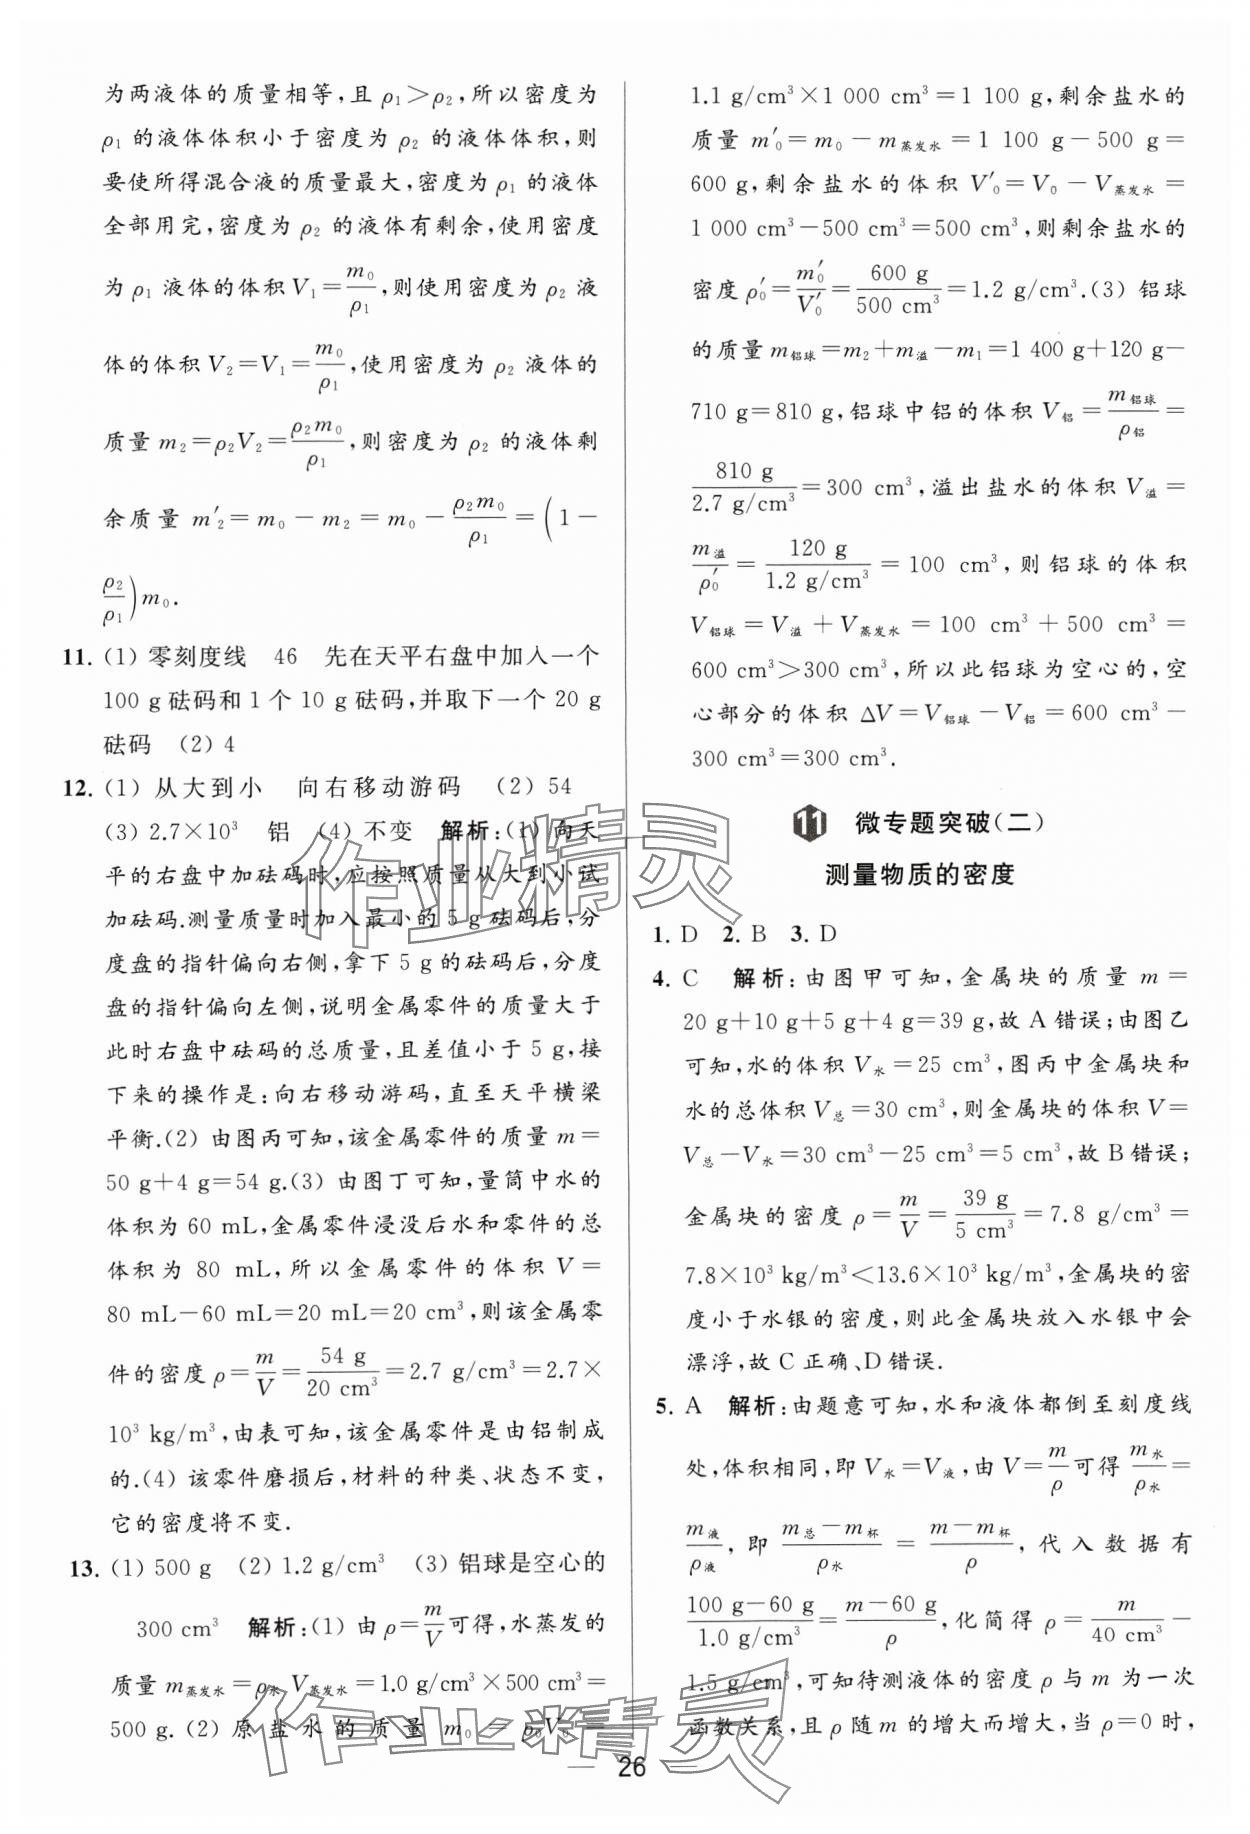 为两液体的质量相等，且 ρ₁＞ρ₂，所以密度为
ρ₁ 的液体体积小于密度为 ρ₂ 的液体体积，则
要使所得混合液的质量最大，密度为 ρ₁ 的液体
全部用完，密度为 ρ₂ 的液体有剩余，使用密度
为 ρ₁ 液体的体积 V₁＝m₀/ρ₁，则使用密度为 ρ₂ 液
体的体积 V₂＝V₁＝m₀/ρ₁，使用密度为 ρ₂ 液体的
质量 m₂＝ρ₂V₂＝ρ₂m₀/ρ₁，则密度为 ρ₂ 的液体剩
余质量 m′₂＝m₀－m₂＝m₀－ρ₂m₀/ρ₁＝(1－
ρ₂/ρ₁)m₀.
11. (1) 零刻度线 46 先在天平右盘中加入一个
100 g 砝码和 1 个 10 g 砝码，并取下一个 20 g
砝码 (2) 4
12. (1) 从大到小 向右移动游码 (2) 54
(3) 2.7×10³ 铝 (4) 不变 解析：(1) 向天
平的右盘中加砝码时，应按照质量从大到小试
加砝码.测量质量时加入最小的 5 g 砝码后，分
度盘的指针偏向右侧，拿下 5 g 的砝码后，分度
盘的指针偏向左侧，说明金属零件的质量大于
此时右盘中砝码的总质量，且差值小于 5 g，接
下来的操作是：向右移动游码，直至天平横梁
平衡.(2) 由图丙可知，该金属零件的质量 m＝
50 g＋4 g＝54 g.(3) 由图丁可知，量筒中水的
体积为 60 mL，金属零件浸没后水和零件的总
体积为 80 mL，所以金属零件的体积 V＝
80 mL－60 mL＝20 mL＝20 cm³，则该金属零
件的密度 ρ＝m/V＝54 g/20 cm³＝2.7 g/cm³＝2.7×
10³ kg/m³，由表可知，该金属零件是由铝制成
的.(4) 该零件磨损后，材料的种类、状态不变，
它的密度将不变.
13. (1) 500 g (2) 1.2 g/cm³ (3) 铝球是空心的
300 cm³ 解析：(1) 由 ρ＝m/V 可得，水蒸发的
质量 m蒸发水＝ρ水V蒸发水＝1.0 g/cm³×500 cm³＝
500 g.(2) 原盐水的质量 m₀＝ρ₀V₀＝
1.1 g/cm³×1 000 cm³＝1 100 g，剩余盐水的
质量 m′₀＝m₀－m蒸发水＝1 100 g－500 g＝
600 g，剩余盐水的体积 V′₀＝V₀－V蒸发水＝
1 000 cm³－500 cm³＝500 cm³，则剩余盐水的
密度 ρ′₀＝m′₀/V′₀＝600 g/500 cm³＝1.2 g/cm³.(3) 铝球
的质量 m铝球＝m₂＋m溢－m₁＝1 400 g＋120 g－
710 g＝810 g，铝球中铝的体积 V铝＝m铝球/ρ铝＝
810 g/2.7 g/cm³＝300 cm³，溢出盐水的体积 V溢＝
m溢/ρ′₀＝120 g/1.2 g/cm³＝100 cm³，则铝球的体积
V铝球＝V溢＋V蒸发水＝100 cm³＋500 cm³＝
600 cm³＞300 cm³，所以此铝球为空心的，空
心部分的体积 ΔV＝V铝球－V铝＝600 cm³－
300 cm³＝300 cm³.
11 微专题突破(二)
测量物质的密度
1. D 2. B 3. D
4. C 解析：由图甲可知，金属块的质量 m＝
20 g＋10 g＋5 g＋4 g＝39 g，故 A 错误；由图乙
可知，水的体积 V水＝25 cm³，图丙中金属块和
水的总体积 V总＝30 cm³，则金属块的体积 V＝
V总－V水＝30 cm³－25 cm³＝5 cm³，故 B 错误；
金属块的密度 ρ＝m/V＝39 g/5 cm³＝7.8 g/cm³＝
7.8×10³ kg/m³＜13.6×10³ kg/m³，金属块的密
度小于水银的密度，则此金属块放入水银中会
漂浮，故 C 正确、D 错误.
5. A 解析：由题意可知，水和液体都倒至刻度线
处，体积相同，即 V水＝V液，由 V＝m/ρ 可得 m水/ρ水＝
m液/ρ液，即 (m总－m杯)/ρ水＝(m－m杯)/ρ，代入数据有
(100 g－60 g)/1.0 g/cm³＝(m－60 g)/ρ，化简得 ρ＝m/40 cm³－
1.5 g/cm³，可知待测液体的密度 ρ 与 m 为一次
函数关系，且 ρ 随 m 的增大而增大，当 ρ＝0 时，
26
作业精灵
作业精灵